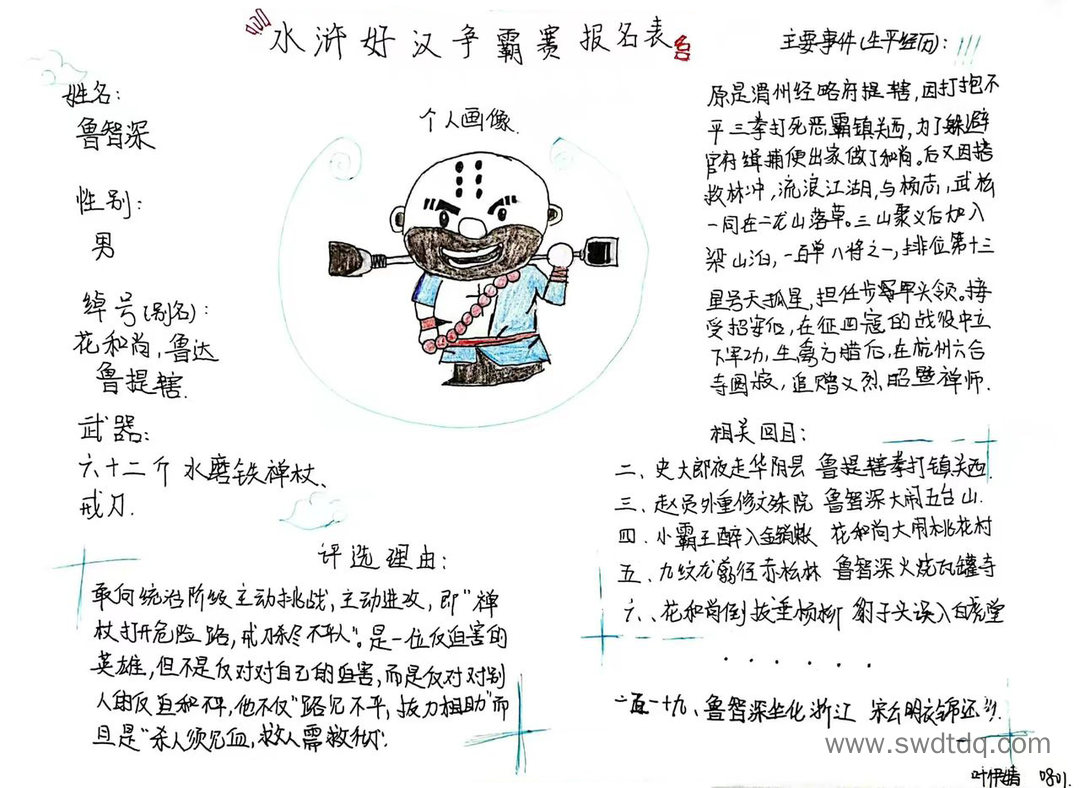 水浒好汉争霸赛报名表
姓名:
鲁智深
性别:
男
绰号(别名):
花和尚,鲁达
鲁提辖.
武器:
六十二斤 水磨铁禅杖、
戒刀.
个人画像.
评选理由:
敢向统治阶级主动挑战,主动进攻,即"禅
杖打开危险路,戒刀杀尽不平人"。是一位反迫害的
英雄,但不是反对对自己的迫害,而是反对对别
人的反迫和不平,他不仅"路见不平,拔刀相助"而
且是"杀人须见血,救人需救彻".
主要事件(生平经历):
原是渭州经略府提辖,因打抱不
平三拳打死恶霸镇关西,为了躲避
官府缉捕便出家做了和尚。后又因搭
救林冲,流浪江湖,与杨志,武松
一同在二龙山落草。三山聚义后加入
梁山泊,一百单八将之一,排位第十三
星号天孤星,担任步军头领。接
受招安后,在征四寇的战役中立
下军功,生禽方腊后,在杭州六合
寺圆寂,追赠义烈昭暨禅师.
相关回目:
二、史大郎夜走华阴县 鲁提辖拳打镇关西
三、赵员外重修文殊院 鲁智深大闹五台山.
四、小霸王醉入金销帐 花和尚大闹桃花村
五、九纹龙翦径赤松林 鲁智深火烧瓦罐寺
六、花和尚倒拔垂杨柳 豹子头误入白虎堂
. . . . . .
一百一十九、鲁智深坐化浙江 宋公明衣锦还乡.
www.swdtdq.com
0801.